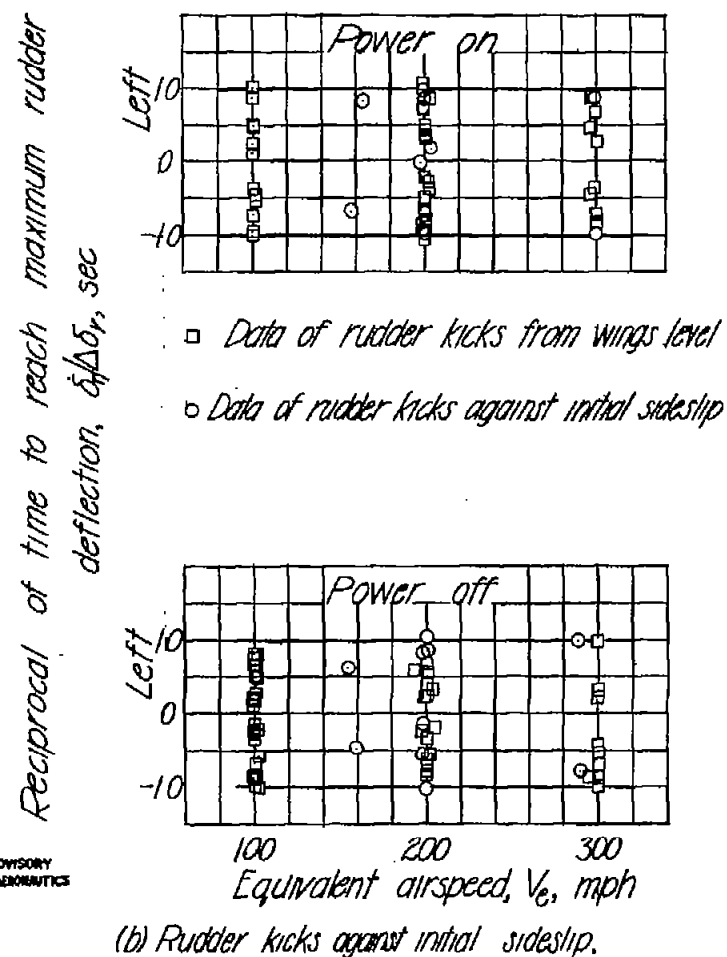 Reciprocal of time to reach maximum rudder
deflection, δ̇r/Δδr, sec
Power on
Left
10
0
-10
□ Data of rudder kicks from wings level
○ Data of rudder kicks against initial sideslip
Power off
Left
10
0
-10
100 200 300
Equivalent airspeed, Ve, mph
(b) Rudder kicks against initial sideslip.